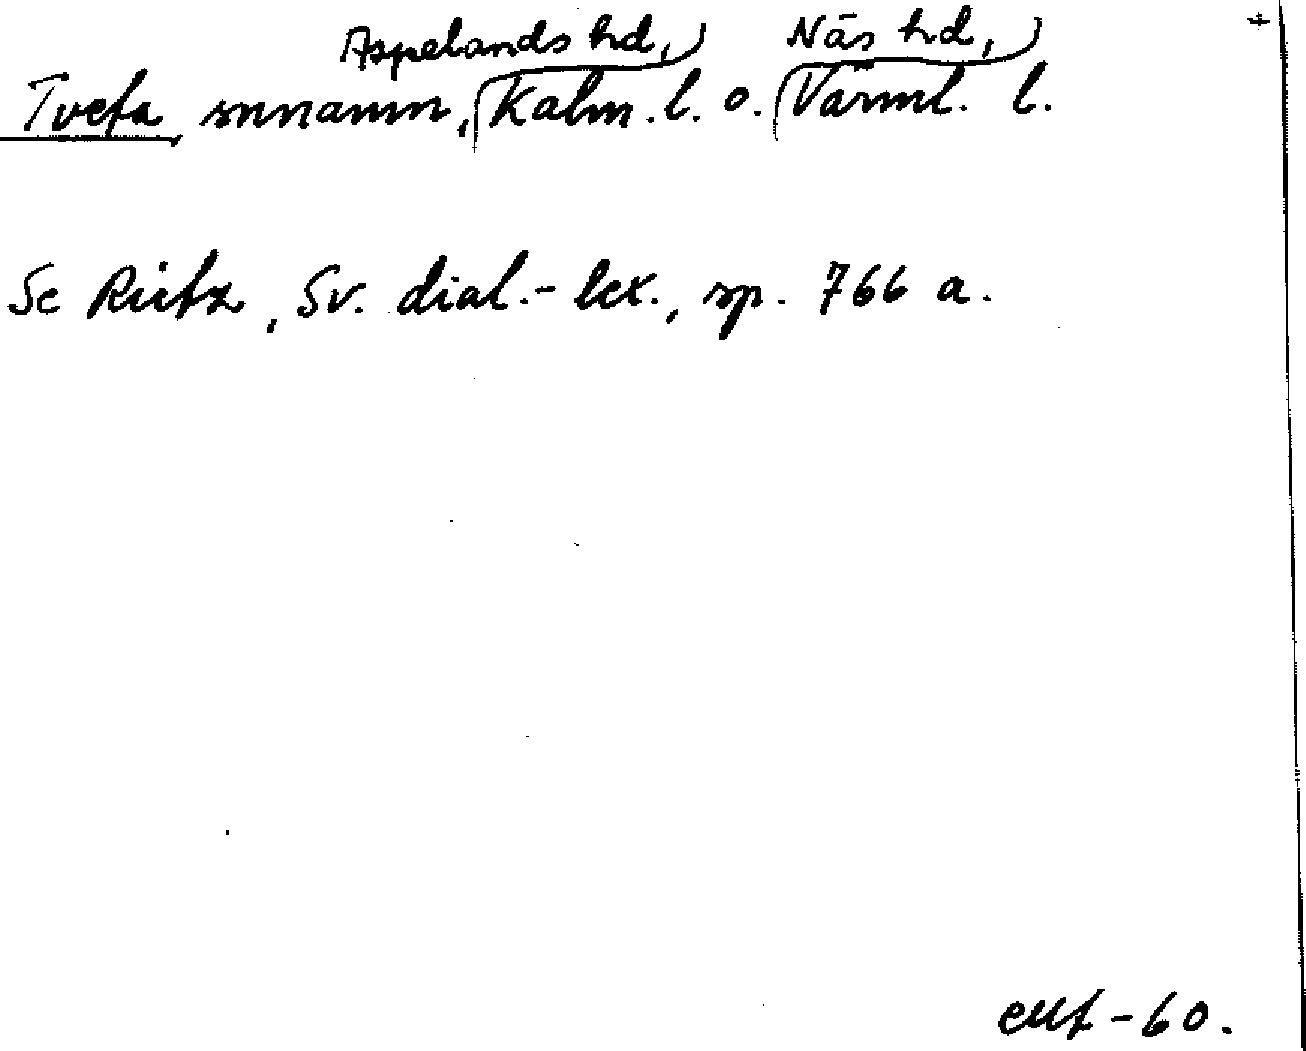 Aspelands hd, Näs hd,
Tveta, snnamn, Kalm. l. o. Värml. l.
Se Rietz, Sv. dial.-lex., sp. 766 a.
-60.